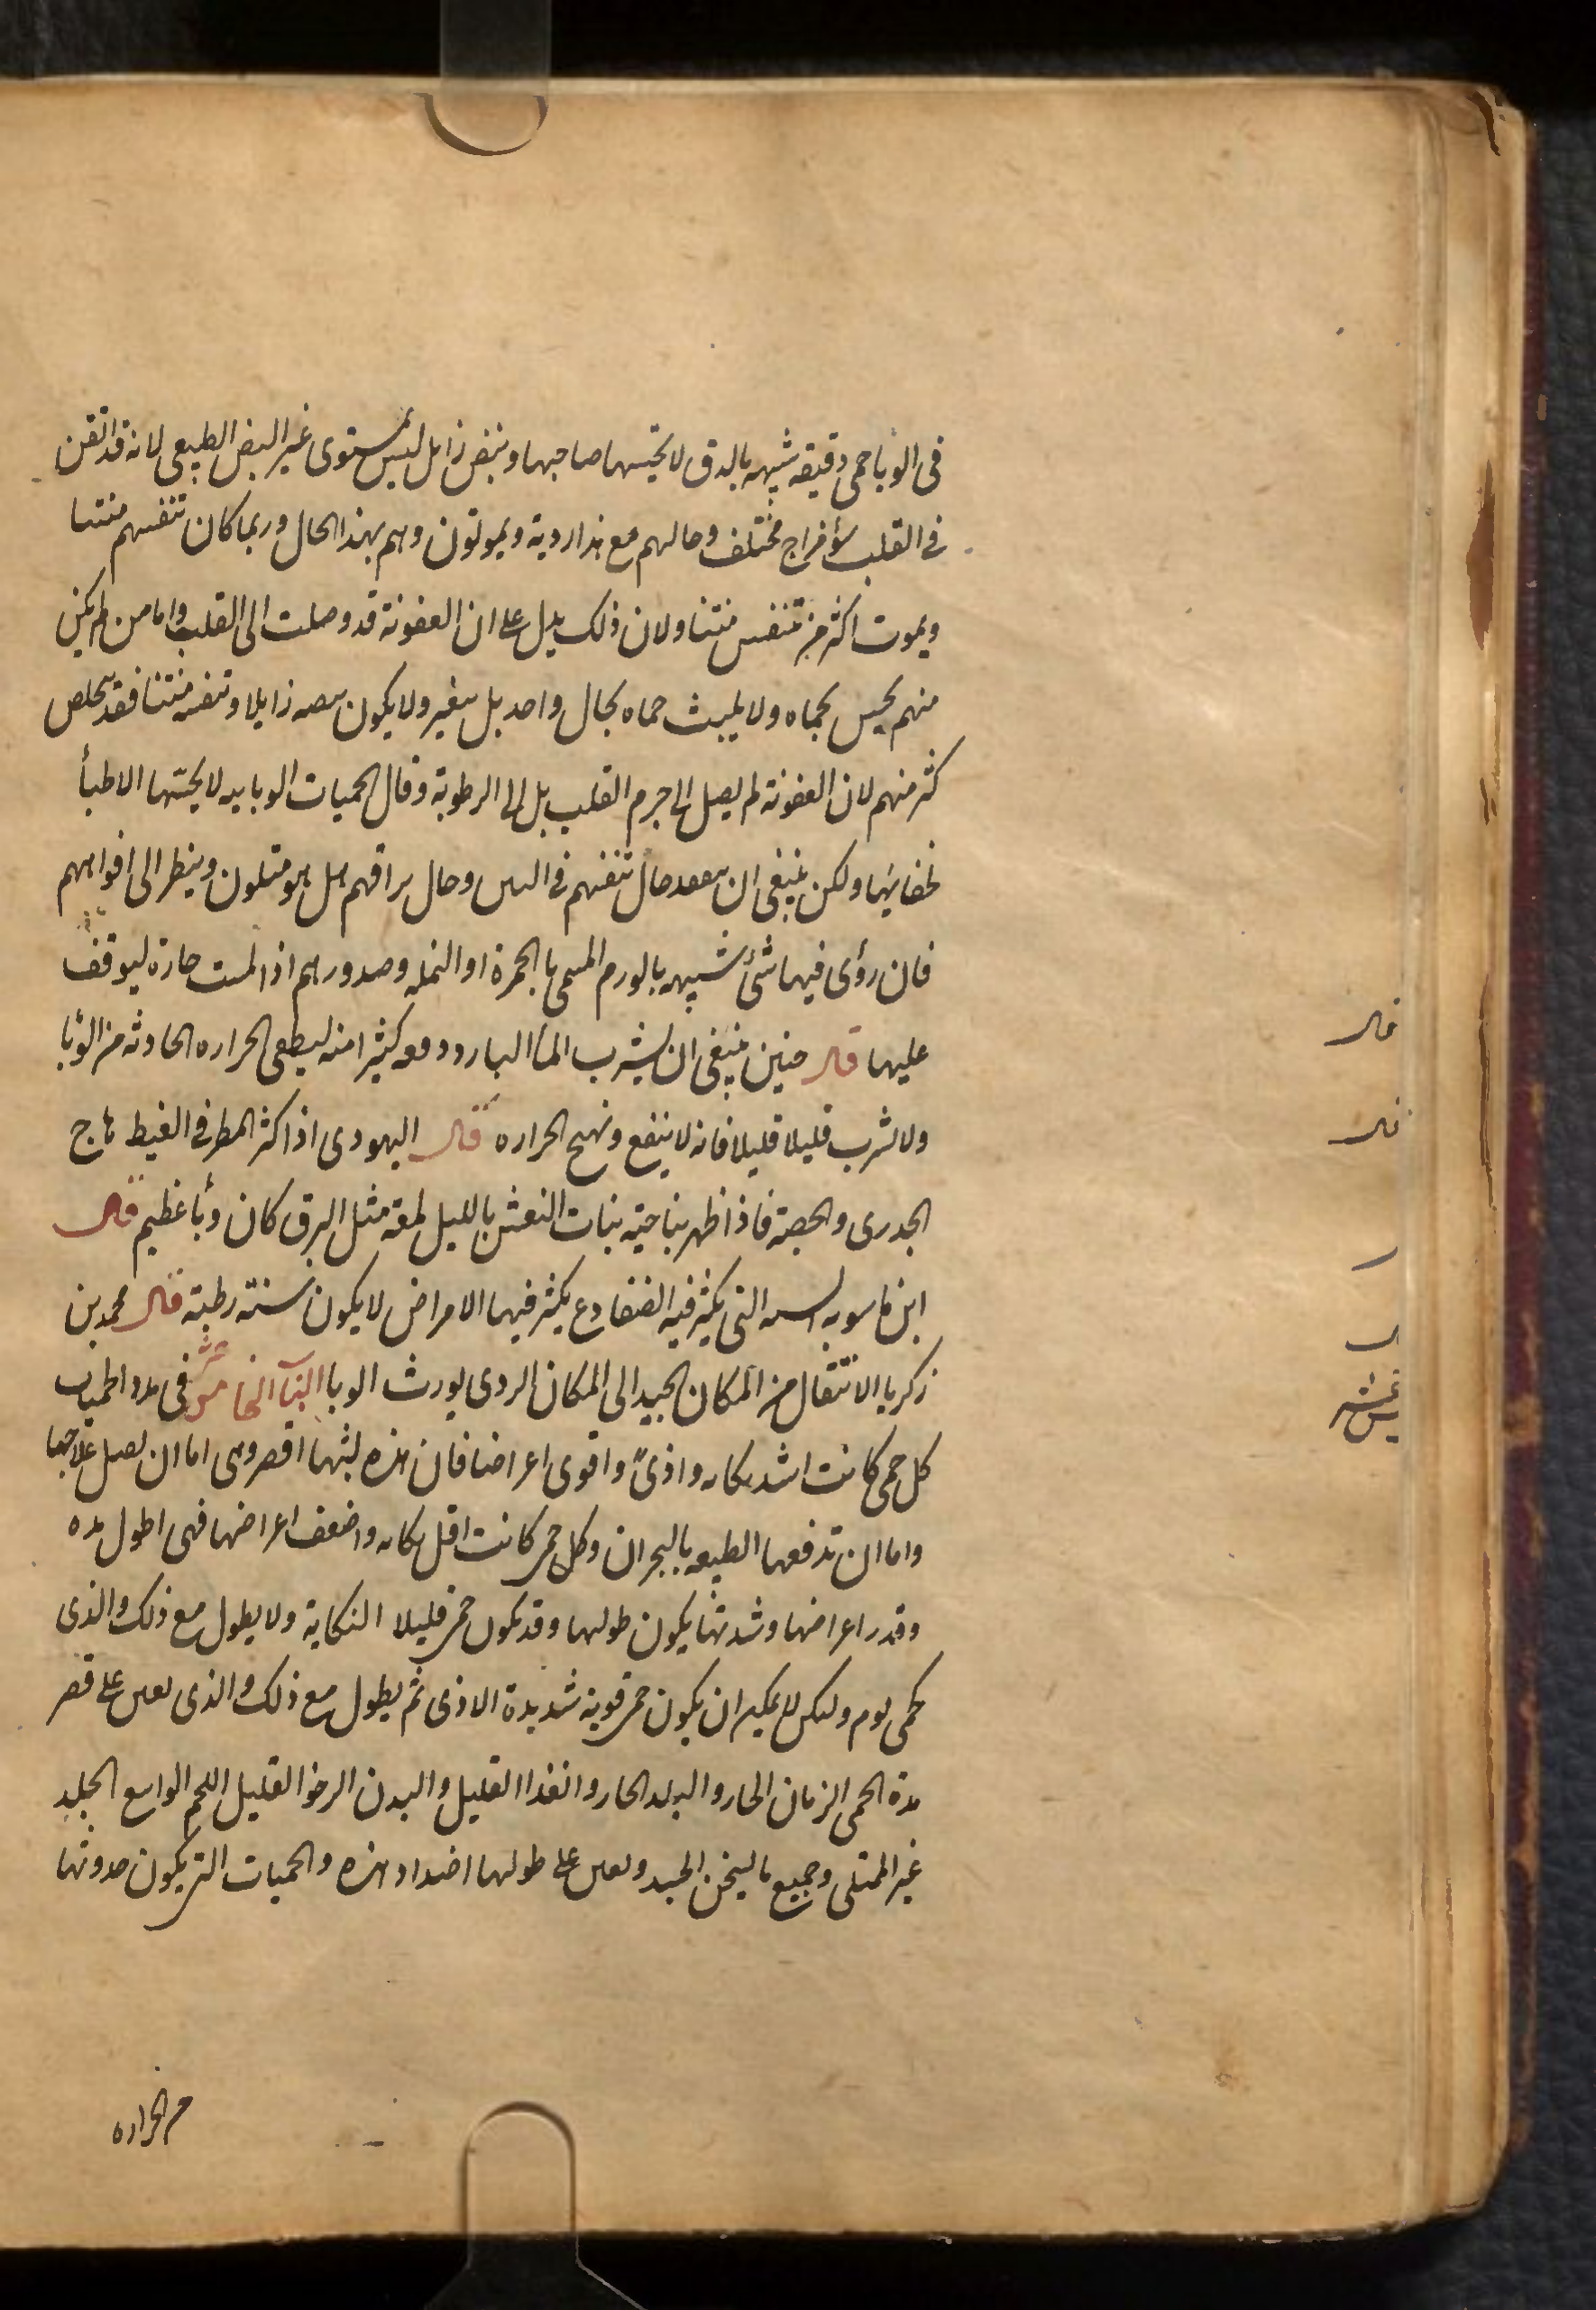 فى الوبا حمى دقيقه شبيهه بالدق لا يحسها صاحبها ونبض زايل ليس بمستوى غير النبض الطبيعى لانه قد اتقن
فى القلب سؤ مزاج مختلف وحالهم مع هذا ردية ويموتون وهم بهذا الحال وربما كان تنفسهم منتنا
ويموت اكثر من تنفس منتنا ولان ذلك يدل على ان العفونة قد وصلت الى القلب واما من لم يكن
منهم يحس بحماه ولا يلبث حماه بحال واحد بل يتغير ولا يكون نبضه زايلا وتنفسه منتنا فقد يتخلص
كثر منهم لان العفونة لم يصل الى جرم القلب بل الى الرطوبة وقال الحميات الوبايه لا يحسها الاطبأ
لخفايها ولكن ينبغى ان يتفقد حال تنفسهم فى النتن وحال براقهم هل هو متلون وينظر الى افواههم
فان رؤى فيها شئ شبيه بالورم المسمى بالجمرة او النمله وصدورهم اذا لمست حارة ليوقف
عليها قال حنين ينبغى ان يشرب الماً البارد دفعه كثيرا منه ليطفى الحراره الحادثه من الوبا
ولا يشرب قليلا قليلا فانه لا ينفع ويهيج الحراره قال اليهودى اذا كثر المطر فى الغيط هاج
الجدرى والحصبة فاذا ظهر بناحية بنات النعش بالليل لمعة مثل البرق كان وبأ عظيم قال
ابن ماسويه السنه التى يكثر فيه الضفادع يكثر فيها الامراض لا يكون سنة رطبة قال محمد بن
زكريا الانتقال من المكان الجيد الى المكان الردى يورث الوبا البآب الخامس عشر فى مدد الحميات
كل حمى كانت اشد نكايه واذىً واقوى اعراضا فان هذه لبثها اقصر وهى اما ان يصل علاجها
واما ان تدفعها الطبيعه بالبحران وكل حمى كانت اقل نكايه واضعف اعراضها فهى اطول مده
وقدر اعراضها وشدتها يكون طولها وقد يكون حمى قليلا النكاية ولا يطول مع ذلك والذى
كحمى يوم ولكن لا يمكن ان يكون حمى قوية شديدة الاذى ثم يطول مع ذلك والذى يعين على قصر
مدة الحمى الزمان الحار والبلد الحار والغذا القليل والبدن الرخو القليل اللحم الواسع الجلد
غير الممتلى وجميع ما يسخن الجسد ويعين على طولها اضداد هذه والحميات التى يكون حدوثها
من الحراره
قال
قال
عشر